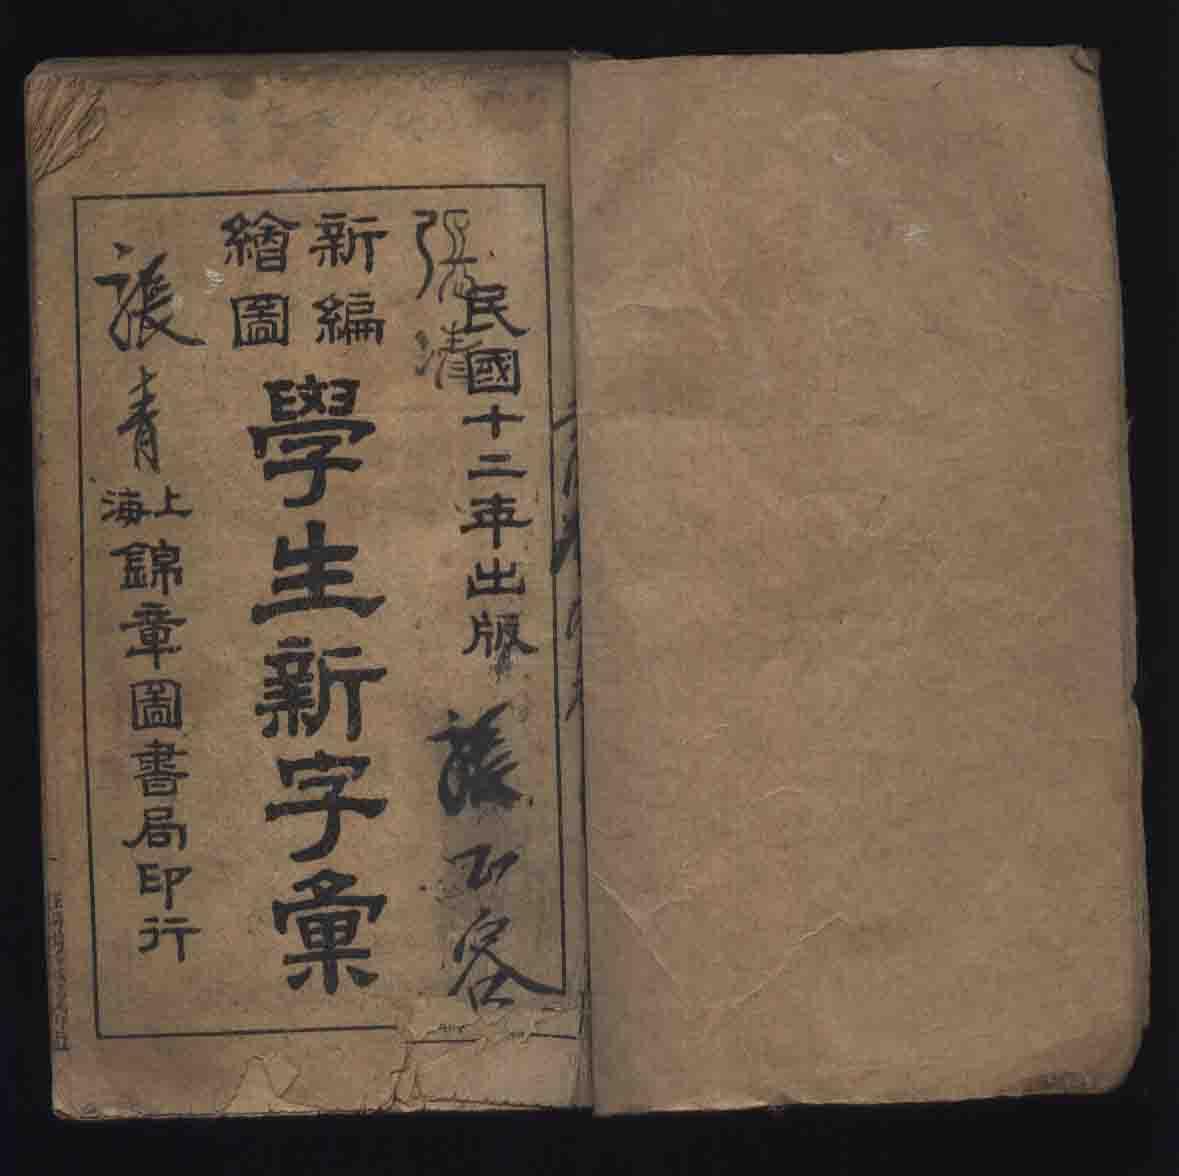 張清
民國十二年出版
張
新編
繪圖
學生新字彙
張青
上海
錦章圖書局印行